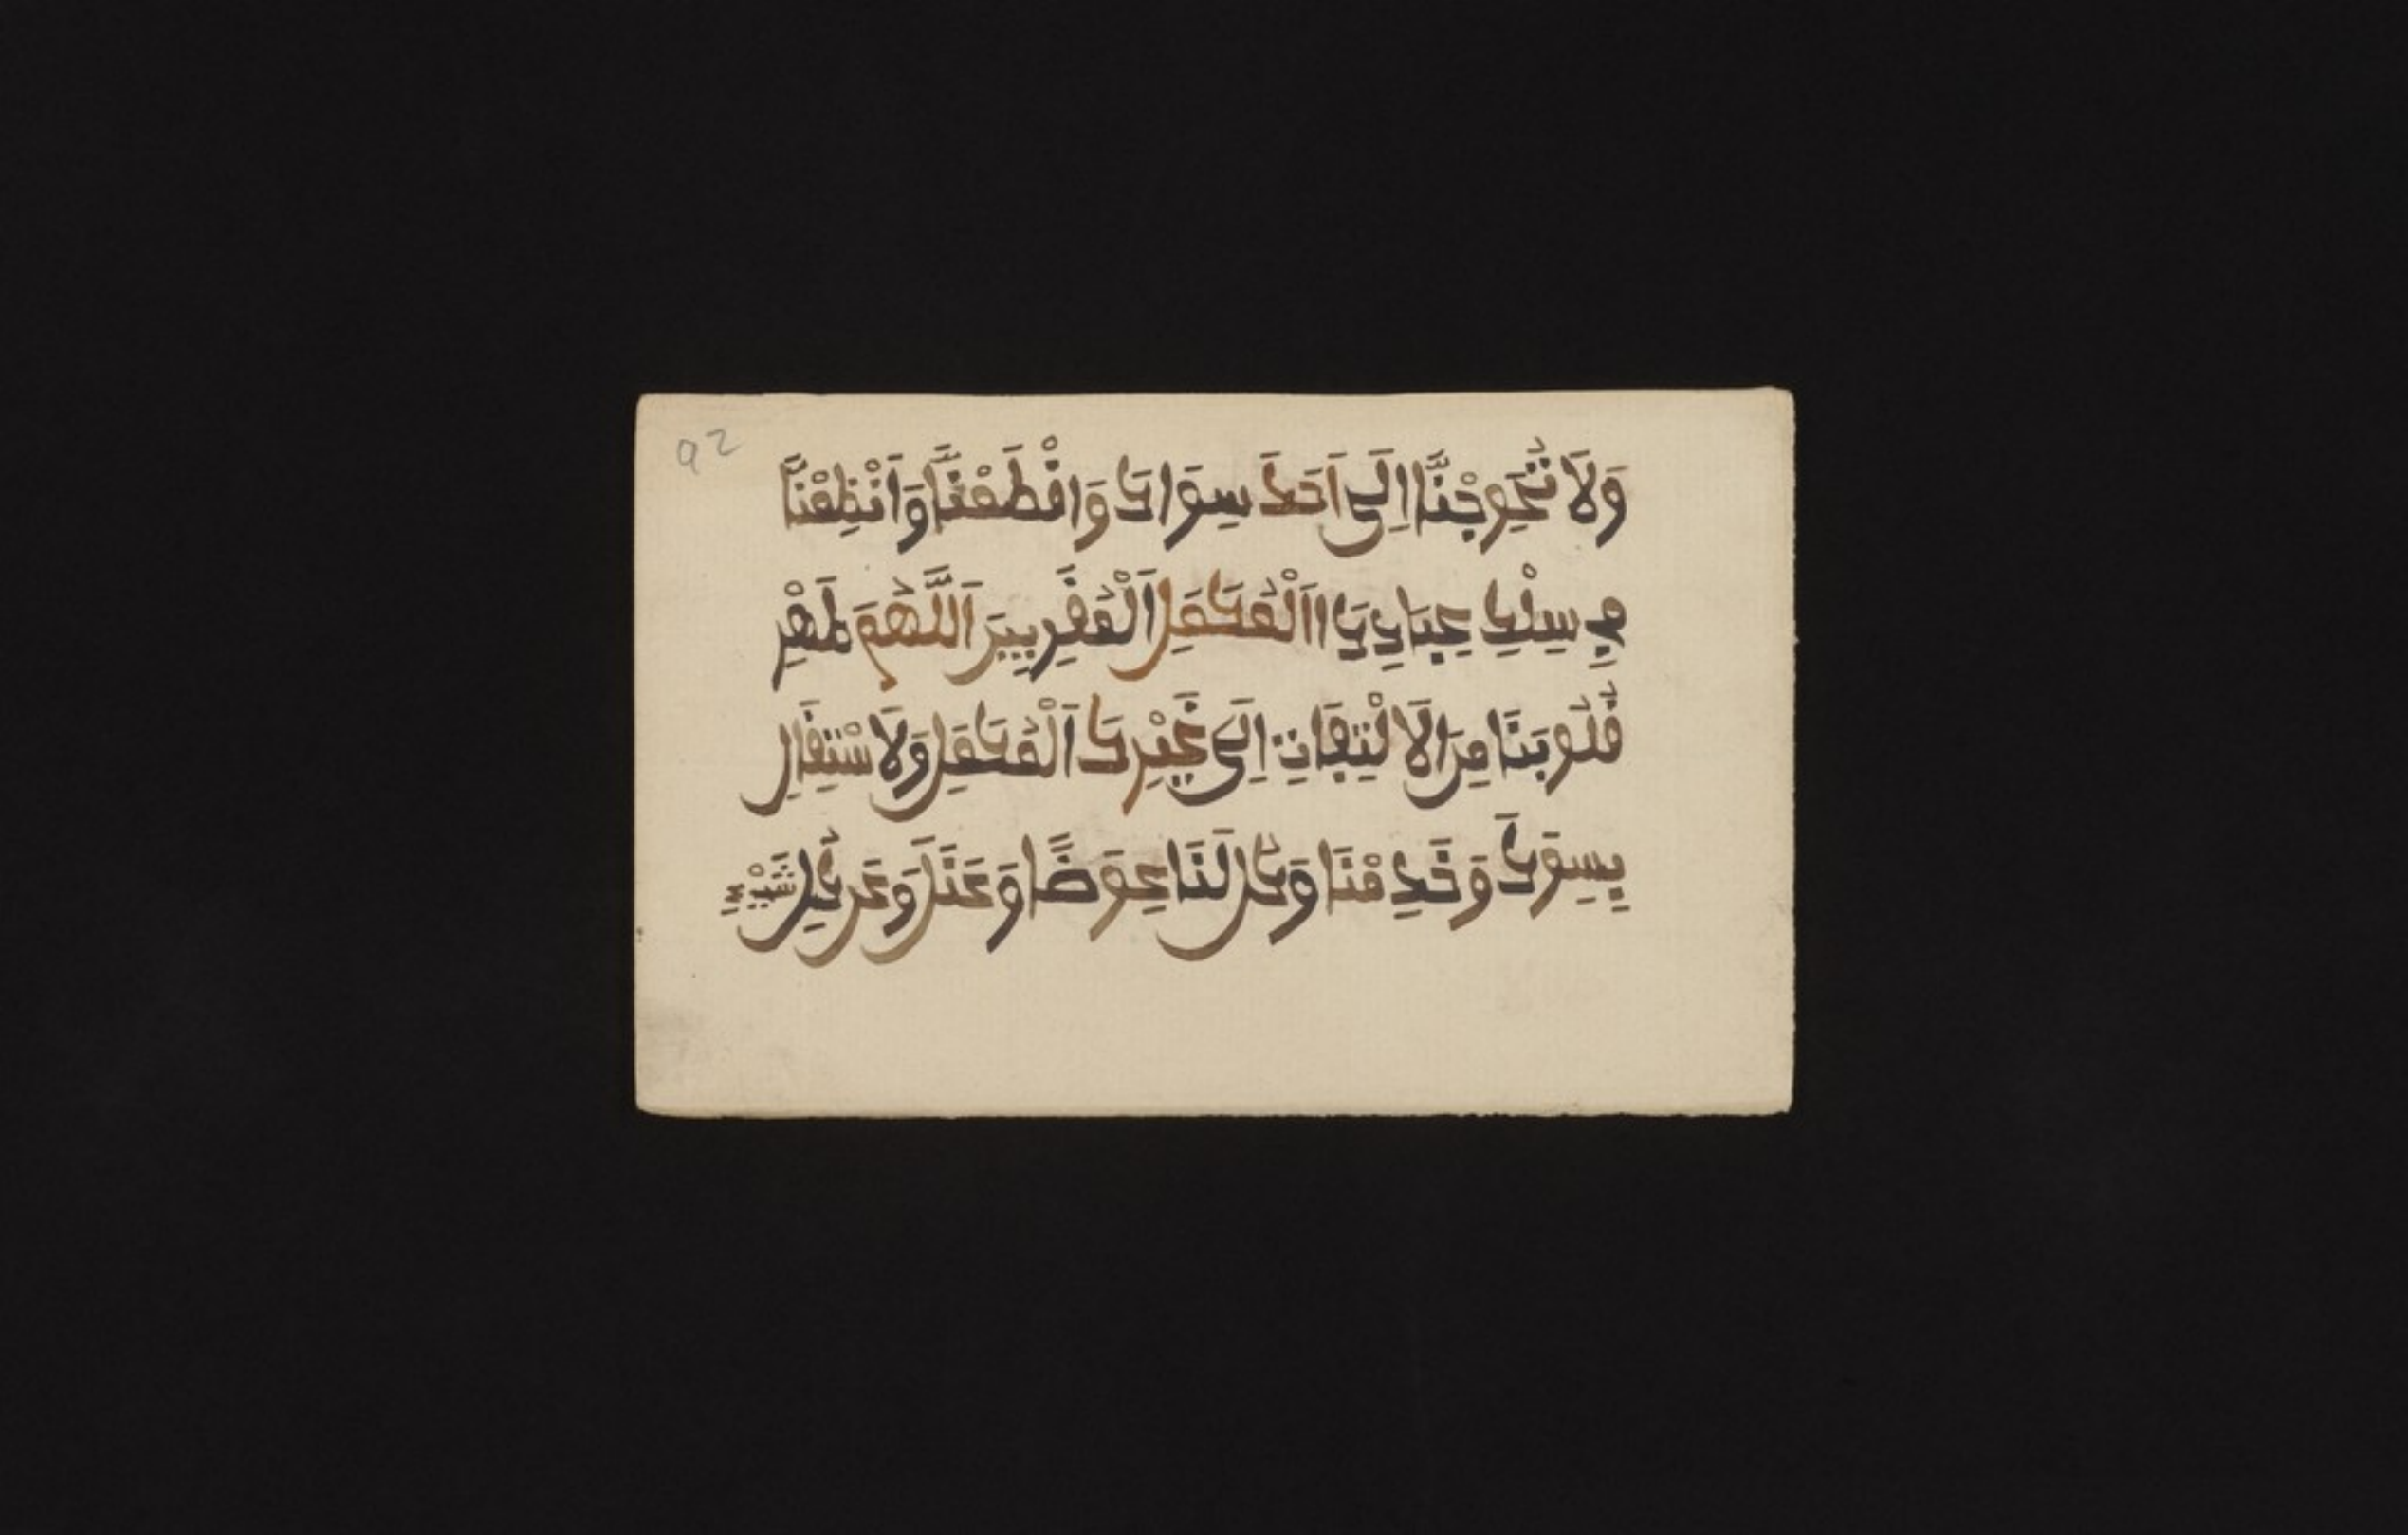 92
وَلَا تُحَوِجْنَّا اِلَى اَحَدَ سِوَاكَ وَاقْطَعْنَّا وَانْظِعْنَّا
فِي سِلْكِ عِبَادِكَ االْمُكَمَلِ اَلْمُقَرِبِينَ اَللَّهُمَ طَهْرِ
قُلُوبَنَا مِنَ الَا لْتِفَاتِ اِلَى غَيْرِكَ اَلْمُكَمَلِ وَلَا سْتِقَالِ
بِسِوَكَ وَخَدِ مْنَا وَكُن لَنَا عِوَضًا وَعَنَن وَعَن كُلِ شَيْءٍ